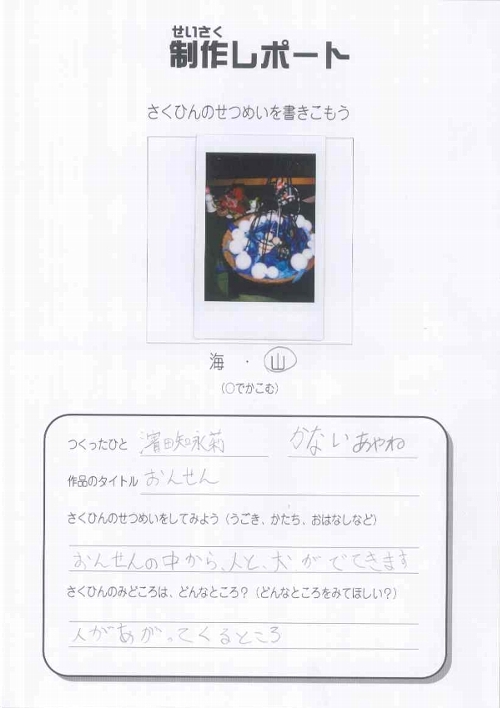 せいさく
制作レポート
さくひんのせつめいを書きこもう
海 ・ 山
(○でかこむ)
つくったひと 濱田知永菊 かないあやね
作品のタイトル おんせん
さくひんのせつめいをしてみよう (うごき、かたち、おはなしなど)
おんせんの中から、人と、犬がでてきます
さくひんのみどころは、どんなところ? (どんなところをみてほしい?)
人があがってくるところ